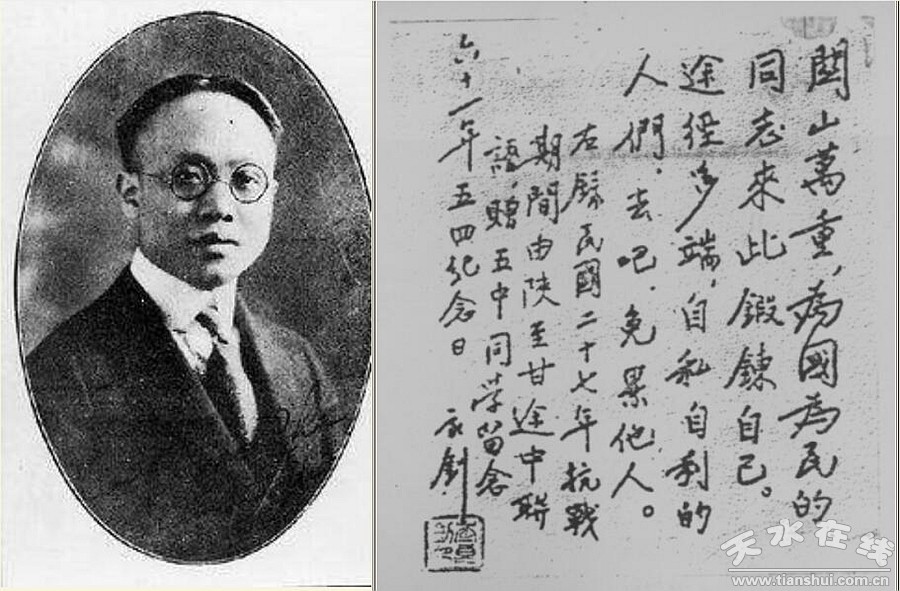 関山萬重，為國為民的
同志來此鍛鍊自己。
途徑多端，自私自利的
人們，去吧，免累他人。
左錄民國二十七年抗戰
期間由陝至甘途中聯
語，贈五中同学留念
六十一年五四紀念日
良釗
天水在线
www.tianshui.com.cn